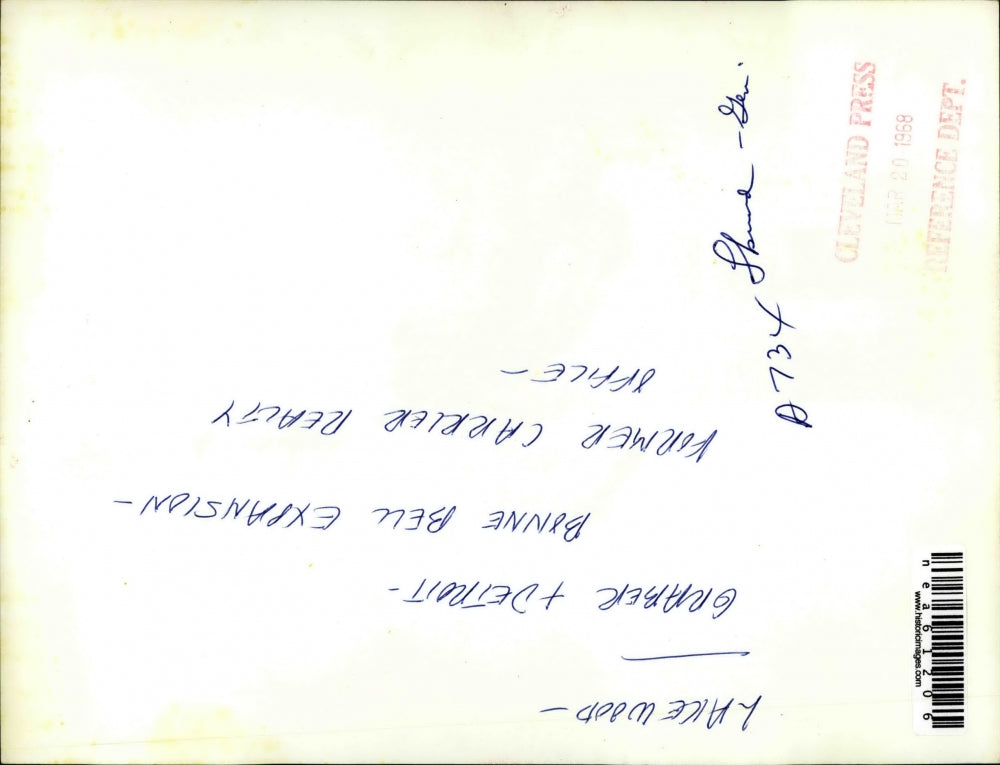 LAKEWOOD -
GRABER + DETROIT -
BONNE BELL EXPANSION -
FORMER CARRIER REALTY
OFFICE -
A734
- Gen.
CLEVELAND PRESS
MAR 20 1968
REFERENCE DEPT.
nea61206
www.historicimages.com